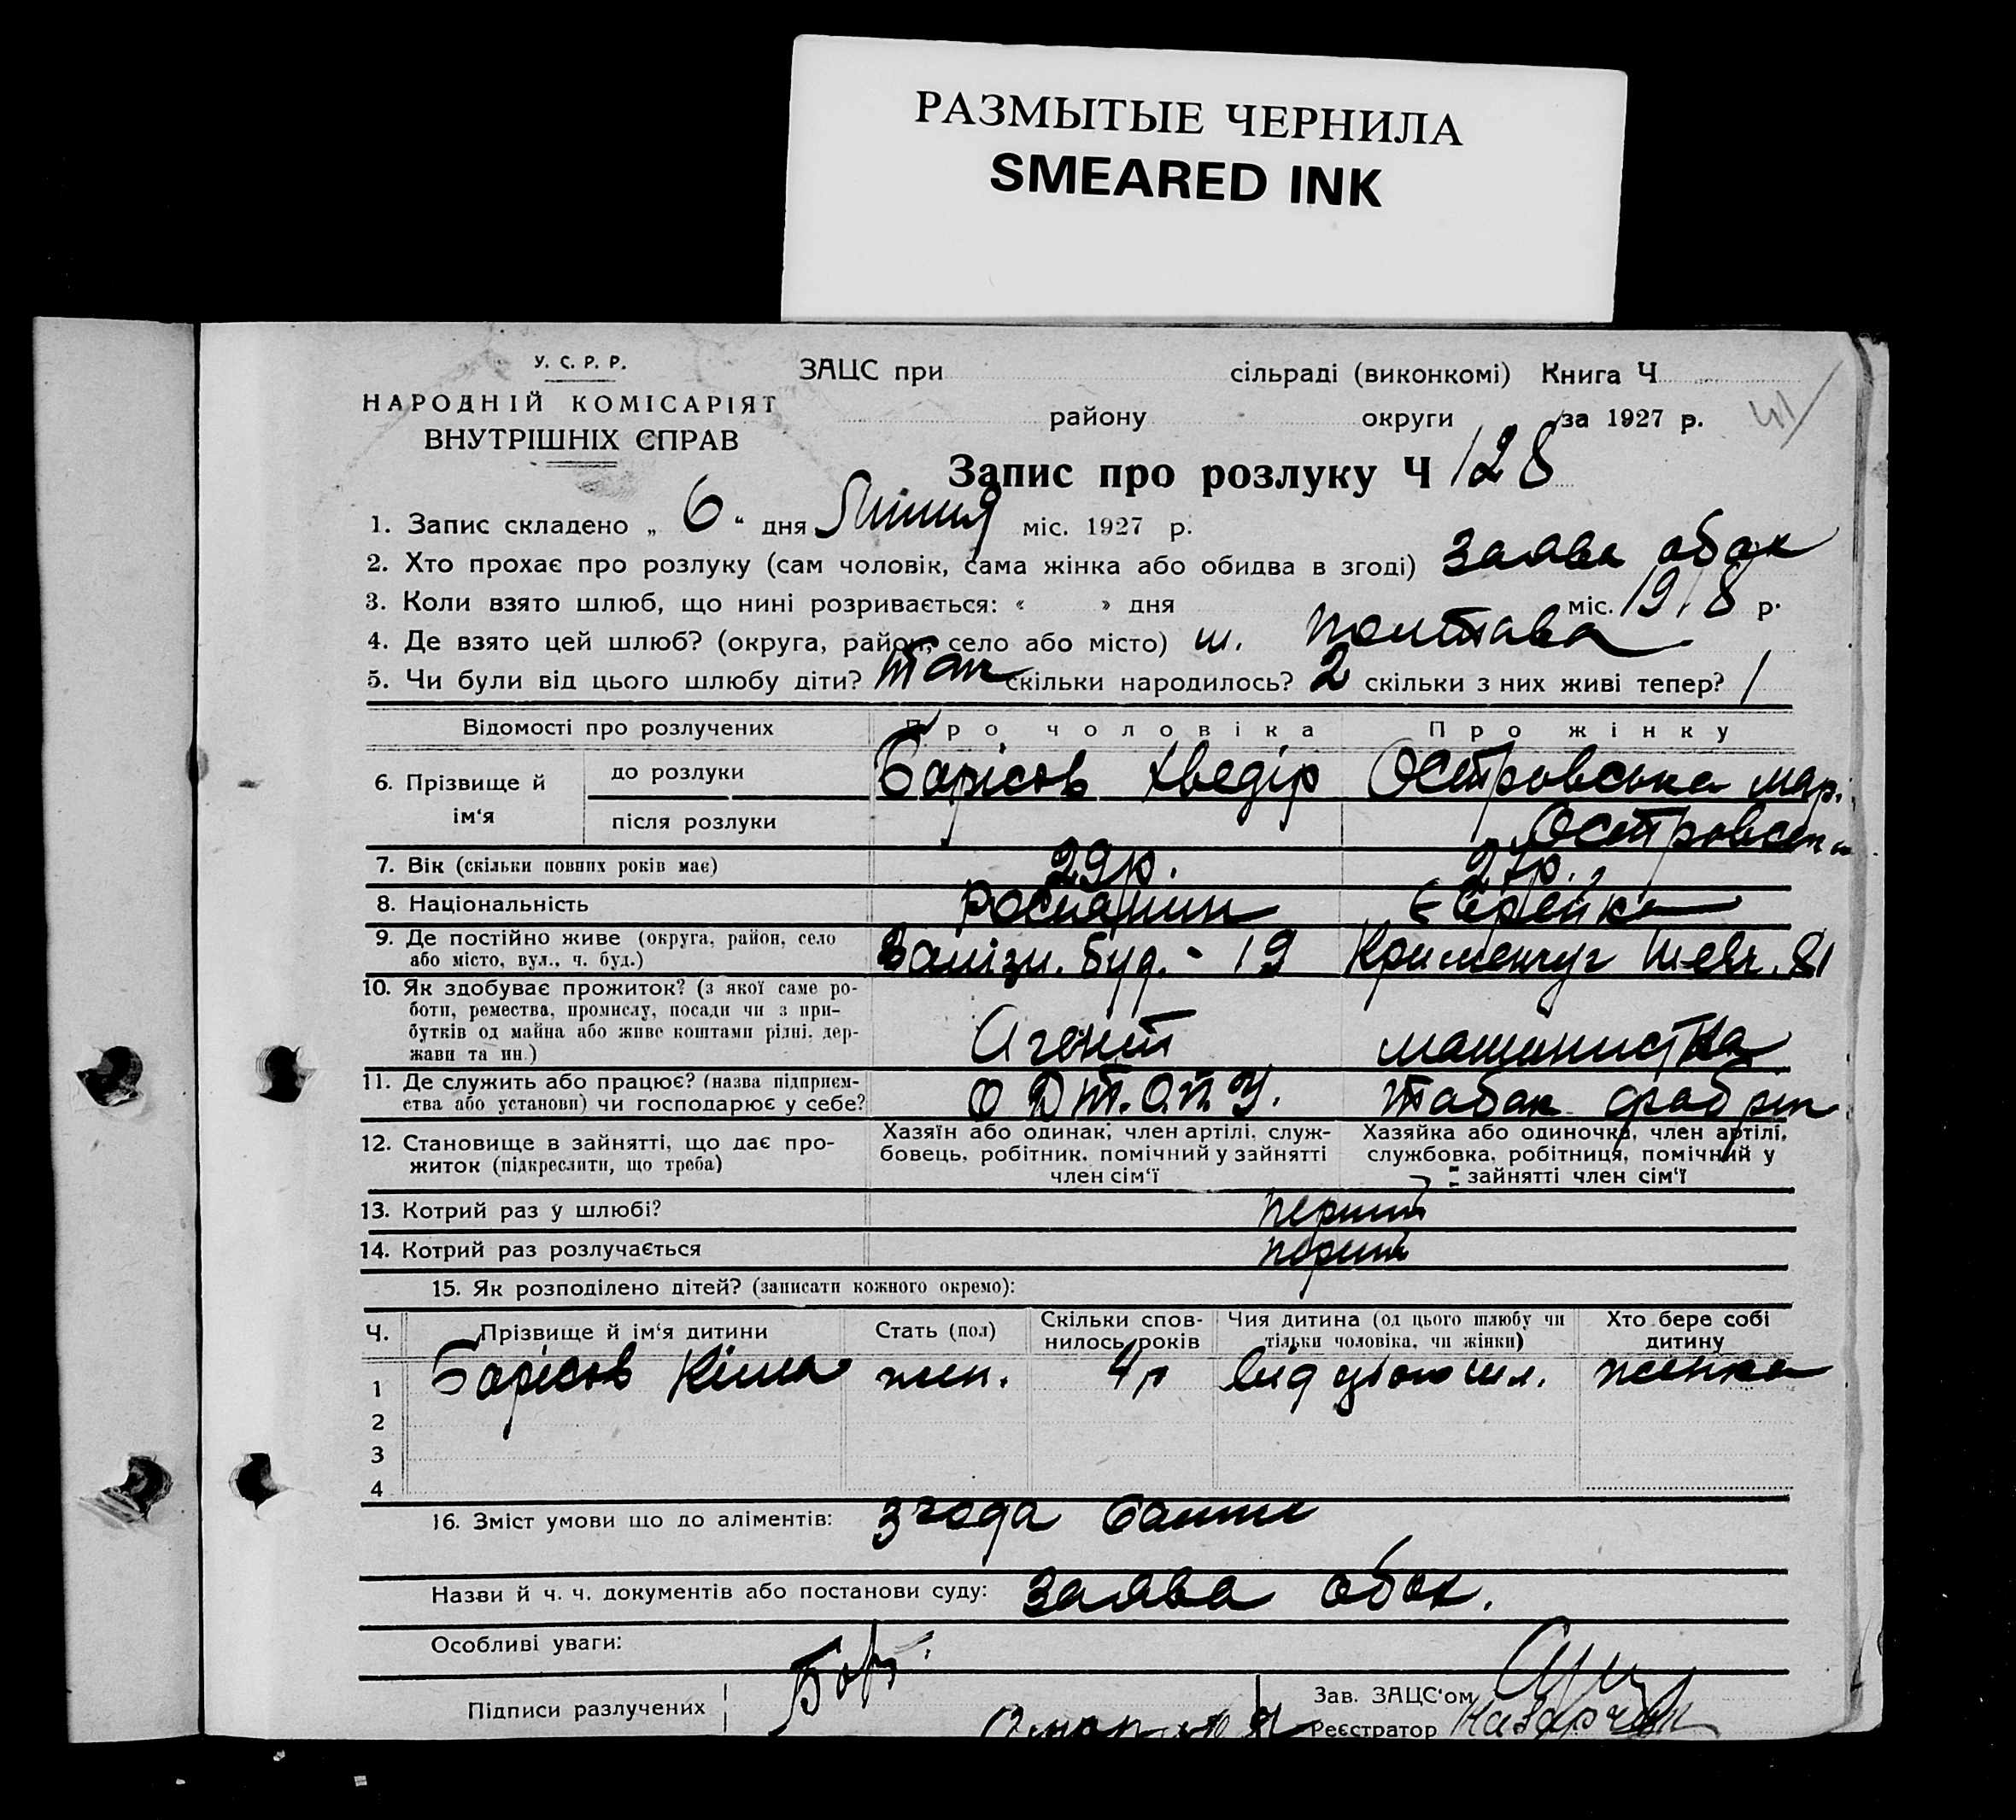 РАЗМЫТЫЕ ЧЕРНИЛА
SMEARED INK
У. С. Р. Р.
НАРОДНІЙ КОМІСАРІЯТ
ВНУТРІШНІХ СПРАВ
ЗАЦС при сільраді (виконкомі) Книга Ч
району округи за 1927 р.
41
Запис про розлуку Ч 128
1. Запис складено „ 6 “ дня Липня міс. 1927 р.
2. Хто прохає про розлуку (сам чоловік, сама жінка або обидва в згоді) заява обох
3. Коли взято шлюб, що нині розривається: « » дня міс. 1918 р.
4. Де взято цей шлюб? (округа, район, село або місто) м. Полтава
5. Чи були від цього шлюбу діти? так скільки народилось? 2 скільки з них живі тепер? 1
Відомості про розлучених Про чоловіка Про жінку
6. Прізвище й ім‘я до розлуки Борісов Хведір Островська Мар.
після розлуки Островськ
7. Вік (скільки повних років має) 29р. 27р.
8. Національність росіянин Єврейка
9. Де постійно живе (округа, район, село або місто, вул., ч. буд.) Залізн. буд. - 19 Крименчуг Шевч. 81
10. Як здобуває прожиток? (з якої саме роботи, ремества, промислу, посади чи з прибутків од майна або живе коштами рідні, держави та ин.) Агент машинистка
11. Де служить або працює? (назва підприємства або установи) чи господарює у себе? О Д Т. О. П. У. Табак фабрик
12. Становище в зайнятті, що дає прожиток (підкреслити, що треба) Хазяїн або одинак; член артілі, службовець, робітник, помічний у зайнятті член сім‘ї Хазяйка або одиночка, член артілі, службовка, робітниця, помічний у зайнятті член сім‘ї
13. Котрий раз у шлюбі? перший
14. Котрий раз розлучається перший
15. Як розподілено дітей? (записати кожного окремо):
Ч. Прізвище й ім‘я дитини Стать (пол) Скільки сповнилось років Чия дитина (од цього шлюбу чи тільки чоловіка, чи жінки) Хто бере собі дитину
1 Борісов Кіма жен. 4р від цього шл. жінка
2
3
4
16. Зміст умови що до аліментів: згода
Назви й ч. ч. документів або постанови суду: заява обох.
Особливі уваги:
Підписи разлучених Зав. ЗАЦС‘ом
Реєстратор